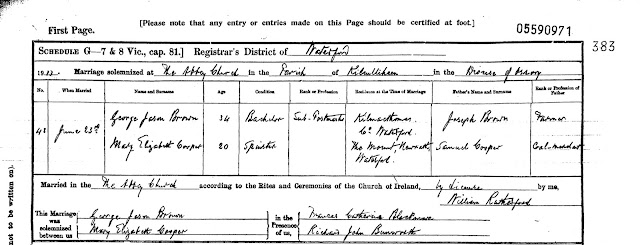 [Please note that any entry or entries made on this Page should be certified at foot.]
First Page.
05590971
383
SCHEDULE G—7 & 8 Vic., cap. 81.] Registrar's District of Waterford
19 Marriage solemnized at The Abbey Church in the Parish of Kilculliheen in the Diocese of Ossory
No. When Married Name and Surname Age Condition Rank or Profession Residence at the Time of Marriage Father's Name and Surname Rank or Profession of Father
George Jason Brown 34 Bachelor Sub. Postmaster Kilmacthomas Joseph Brown Farmer
Co. Waterford.
41 June 23rd
Mary Elizabeth Cooper 20 Spinster The Mount, Newrath Samuel Cooper Coal-merchant
Waterford.
Married in the The Abbey Church according to the Rites and Ceremonies of the Church of Ireland, by licence by me,
William Rutherford
This Marriage was solemnized between us
George Jason Brown
Mary Elizabeth Cooper
in the Presence of us,
Frances Catherine Blackmore
Richard John
not to be written on).